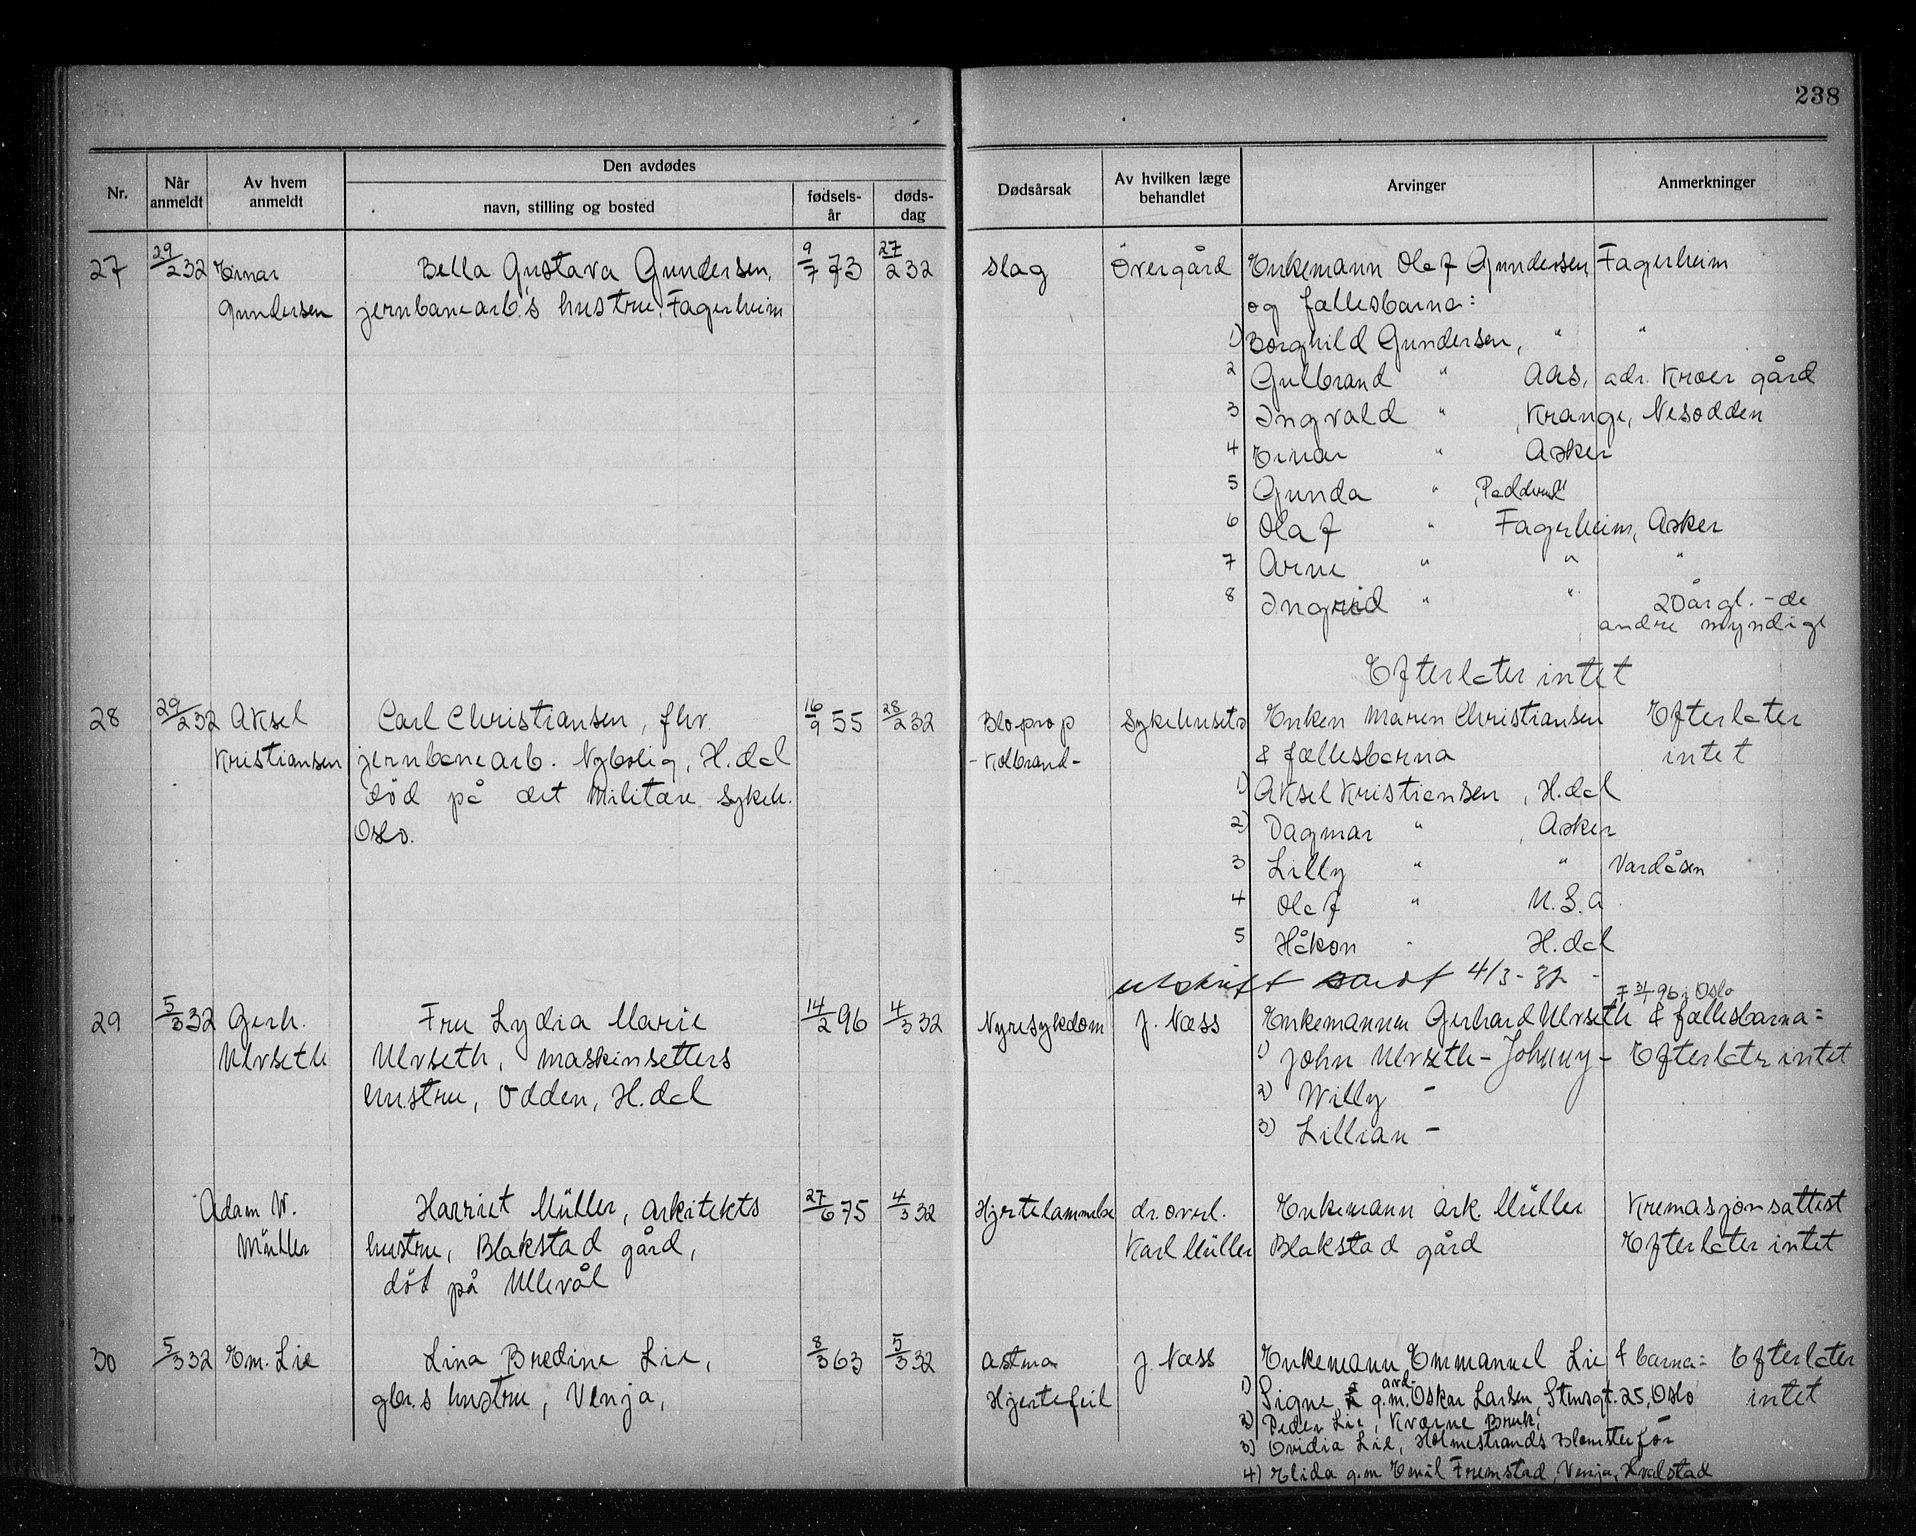 238
Nr. Når anmeldt Av hvem anmeldt Den avdødes navn, stilling og bosted fødselsår dødsdag Dødsårsak Av hvilken læge behandlet Arvinger Anmerkninger
27 29/2 32 Einar Bella Gustava Gundersen, 9/7 73 27/2 32 slag Övergård Enkemann Olaf Gundersen Fagerheim
Gundersen jernbanearb.s hustru, Fagerheim og fællesbarna:
1) Borghild Gundersen, " "
2 Gulbrand " Aas, adr. Kroer gård
3 Ingvald " , Krange, Nesodden
4 Einar " Asker
5 Gunda "
6 Olaf " Fagerheim, Asker
7 Arne " " "
8 Ingrid " " 20 år gl. - de
andre myndige
Efterlater intet
28 29/2 32 Aksel Carl Christiansen, fhv. 16/9 55 28/2 32 Blo.prop Sykehuset Enken Maren Christiansen Efterlater
Kristiansen jernbanearb. Nybolig, H.dal - Kolbrand - & fællesbarna intet
död på det militære sykeh. 1) Aksel Kristiansen, H.dal
Oslo. 2) Dagmar " , Asker
3 Lilly " " Vardåsen
4 Olaf " U.S.A
5 Håkon " H.dal
utskrift sendt 4/3-32 -
i Oslo
29 5/3 32 Gerh. Fru Lydia Marie 14/2 96 4/3 32 Nyresykdom J. Næss Enkemannen Gerhard Ulvseth & fællesbarna:
Ulvseth Ulvseth, maskinsetters 1) John Ulvseth - Johnny - Efterlater intet
hustru, Odden, H.dal 2) Willy -
3) Lillian -
Adam W. Harriet Müller, arkitekts 27/6 75 4/3 32 Hjertelammelse dr. overl. Enkemann ark. Müller Kremasjonsattest
Müller hustru, Blakstad gård, Karl Müller Blakstad gård Efterlater intet
död på Ullevål
30 5/3 32 Em. Lie Lina Bredine Lie, 8/3 63 5/3 32 astma J. Næss Enkemann Emmanuel Lie & barna: Efterlater
gbr.s hustru, Venja, Hjertefeil 1) Signe g.m. Oskar Larsen, Stensgt. 25, Oslo intet
2) Peder Lie, Kværne Bruk,
3) Ovidia Lie, Holmestrands Blomsterfor
4) Elida g.m Emil Fremstad, Venja, Hvalstad